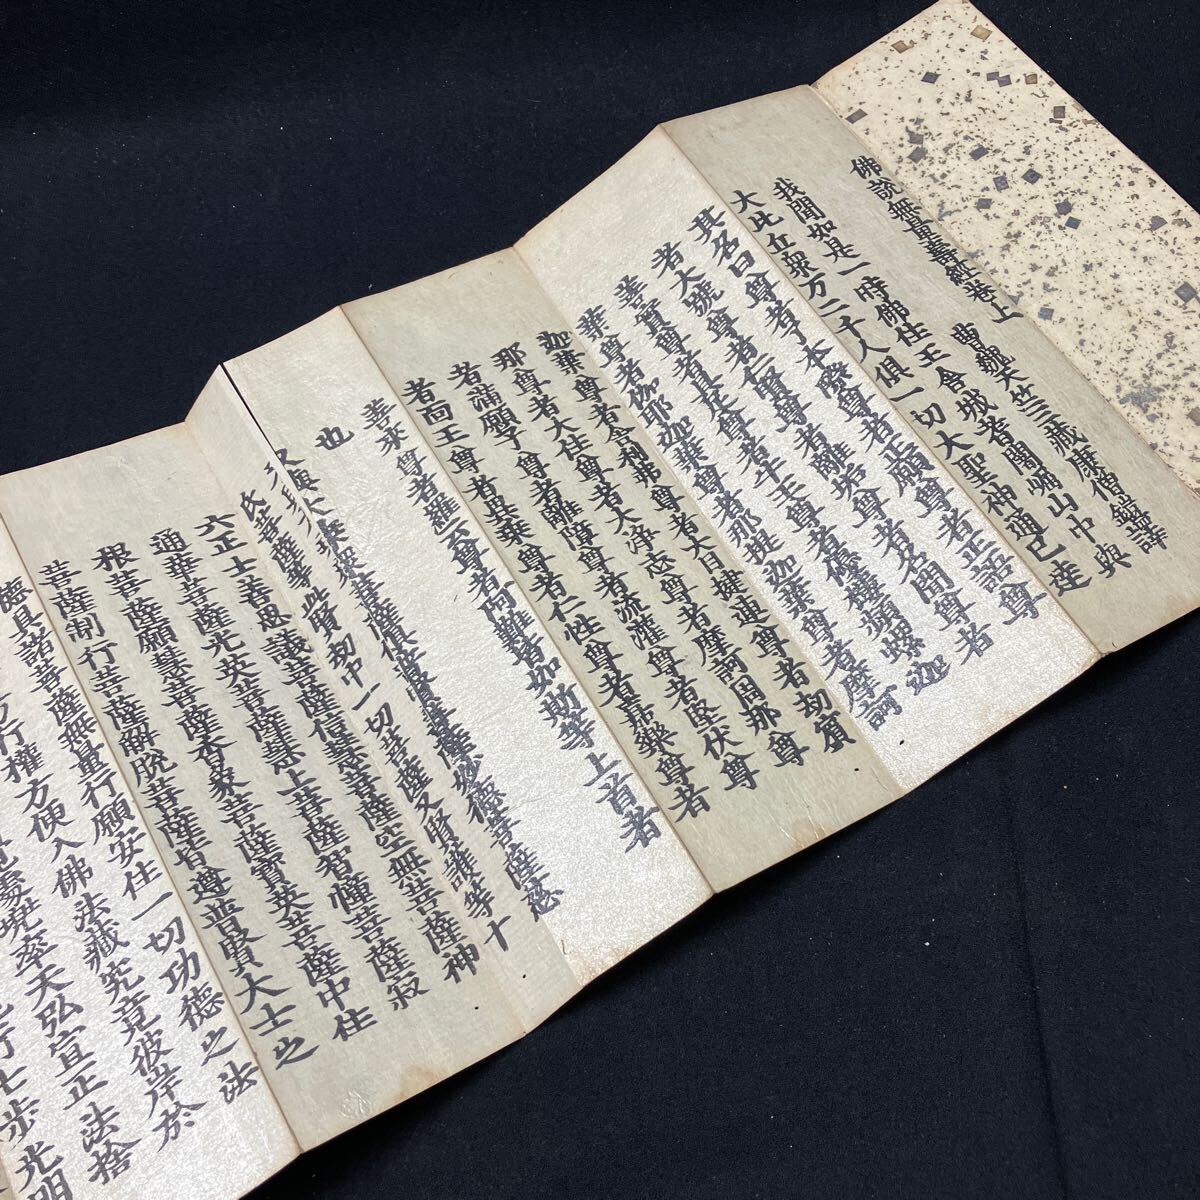 佛說無量壽經卷上
曹魏天竺三藏康僧鎧譯
我聞如是一時佛住王舍城耆闍崛山中與
大比丘眾万二千人俱一切大聖神通已達
其名曰尊者了本際尊者正願尊者正語尊
者大號尊者仁賢尊者離垢尊者名聞尊者
善實尊者具足尊者牛王尊者優樓頻螺迦
葉尊者伽耶迦葉尊者那提迦葉尊者摩訶
迦葉尊者舍利弗尊者大目揵連尊者劫賓
那尊者大住尊者大淨志尊者摩訶周那尊
者滿願子尊者離障尊者流灌尊者堅伏尊
者面王尊者異乘尊者仁性尊者嘉樂尊者
善來尊者羅云尊者阿難皆如斯等上首者
也
又與大乘眾菩薩俱普賢菩薩妙德菩薩慈
氏菩薩等此賢劫中一切菩薩又賢護等十
六正士善思議菩薩信慧菩薩空無菩薩神
通華菩薩光英菩薩慧上菩薩智幢菩薩寂
根菩薩願慧菩薩香象菩薩寶英菩薩中住
菩薩制行菩薩解脫菩薩皆遵普賢大士之
德具諸菩薩無量行願安住一切功德之法
行權方便入佛法藏究竟彼岸於
兜率天弘宣正法捨
行七步光明